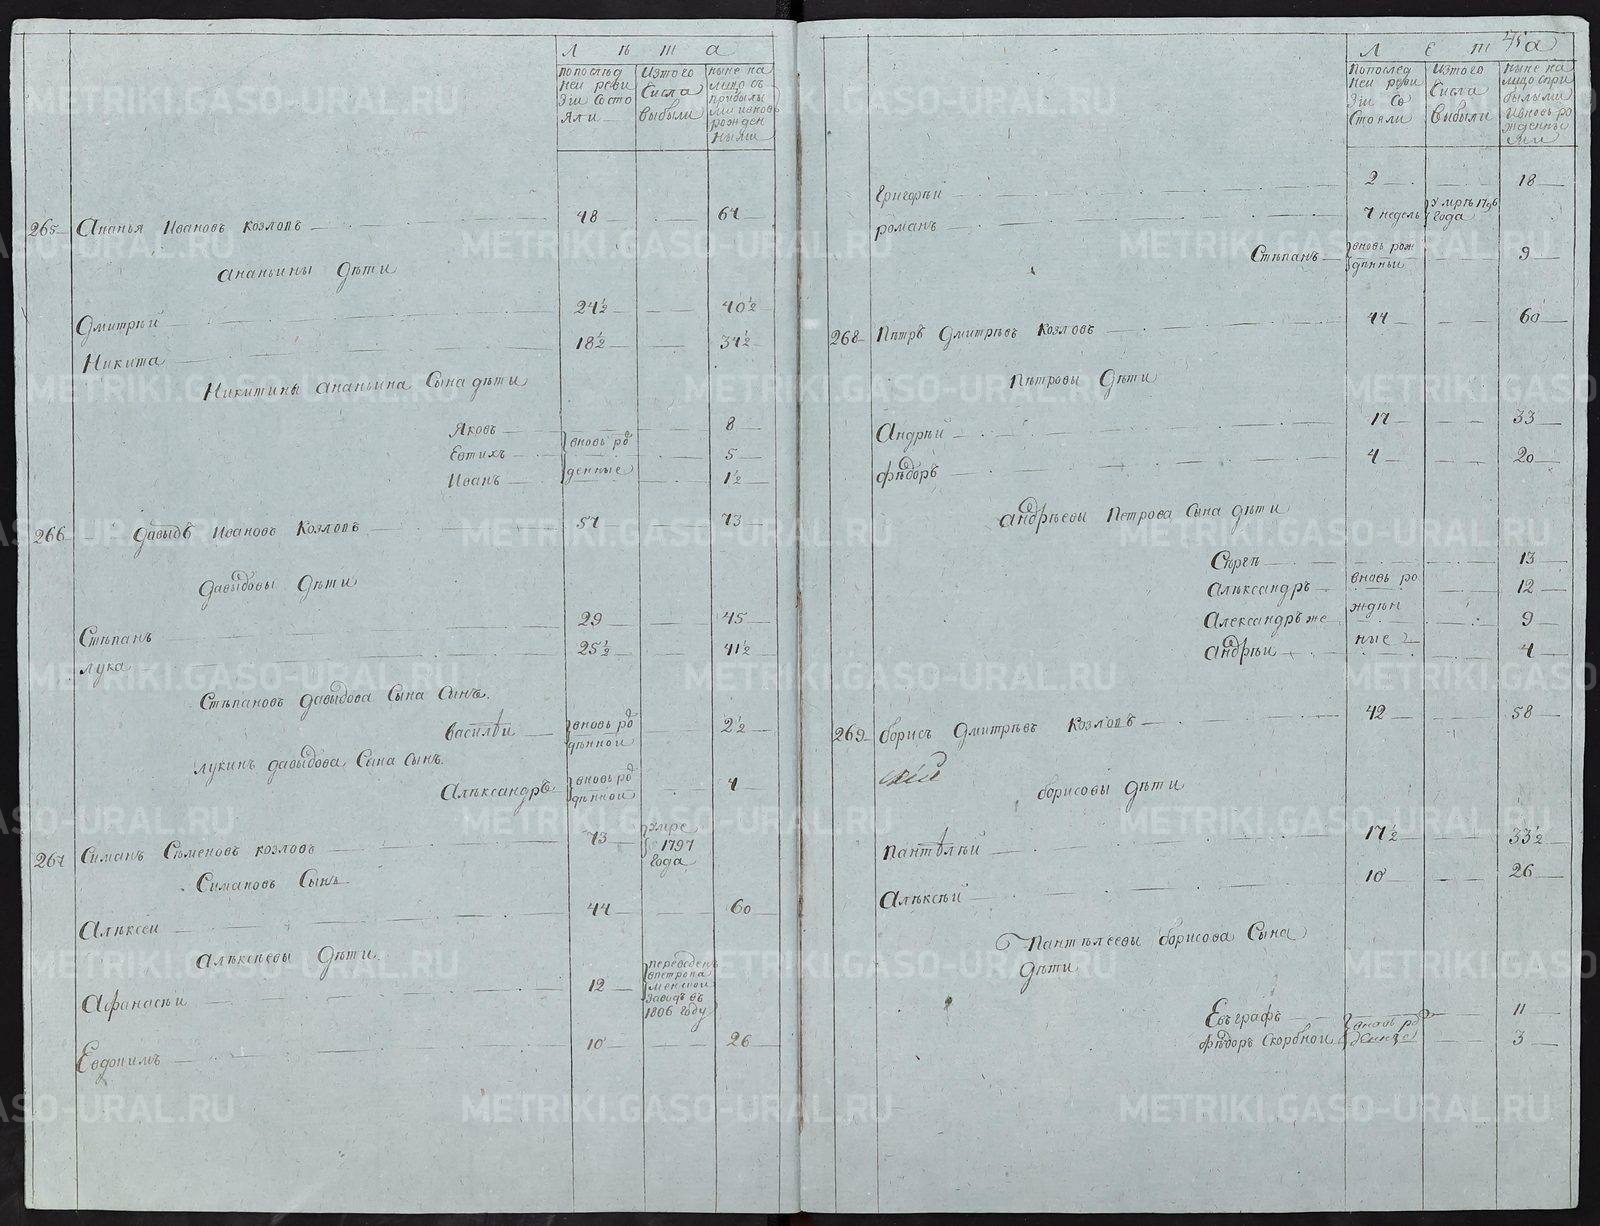 Л ѣ т а
попослѣд
ней реви
зіи состо
яли
изтого
Числа
выбыли
ныне на
лицо съ
прибылы
ми ивновь
рожден
ными
265 Ананья Ивановъ козловъ 48 64
ананьины дѣти
дмитрѣй 24½ 40½
Никита 18½ 34½
Никитины ананьина Сына дѣти
Яковъ 8
Евтихъ вновь ро 5
Иванъ денные 1½
266 давыдъ Ивановъ Козловъ 57 73
давыдовы дѣти
Стѣпанъ 29 45
лука 25½ 41½
Стѣпановъ давыдова Сына Сынъ.
василѣи вновь ро 2½
дѣнной
лукинъ давыдова Сына Сынъ.
Алѣксандръ вновь ро 4
дѣнной
267 Симанъ Сѣменовъ козловъ 73 умре
1797
года
Симановъ Сынъ
Алѣксеи 44 60
алѣксѣевы дѣти
Афанасѣи 12 переведенъ
впетропа
менской
заводъ въ
1806 году
Евдокимъ 10 26
Л ѣ т а
45
попослед
ней реви
зіи со
стояли
изтого
Числа
выбыли
ныне на
лицо спри
былыми
ивновь ро
жденны
ми
григорѣи 2 18
романъ 7 недель умрѣ 1796
года
Стѣпанъ вновь рож 9
дѣнныи
268 Пѣтръ дмитрѣвъ козловъ 44 60
пѣтровы дѣти
Андрѣй 17 33
фѣдоръ 4 20
андрѣевы Петрова Сына дѣти
Сѣргѣ 13
алѣксандръ вновь ро 12
Александръ же ждѣн 9
андрѣи ные 4
269 борисъ дмитрѣвъ козловъ 42 58
борисовы дѣти
пантѣлѣи 17½ 33½
Алѣксѣй 10 26
Пантѣлеевы борисова Сына
дѣти
Евграфъ вновь ро 11
фѣдоръ скорбной 3